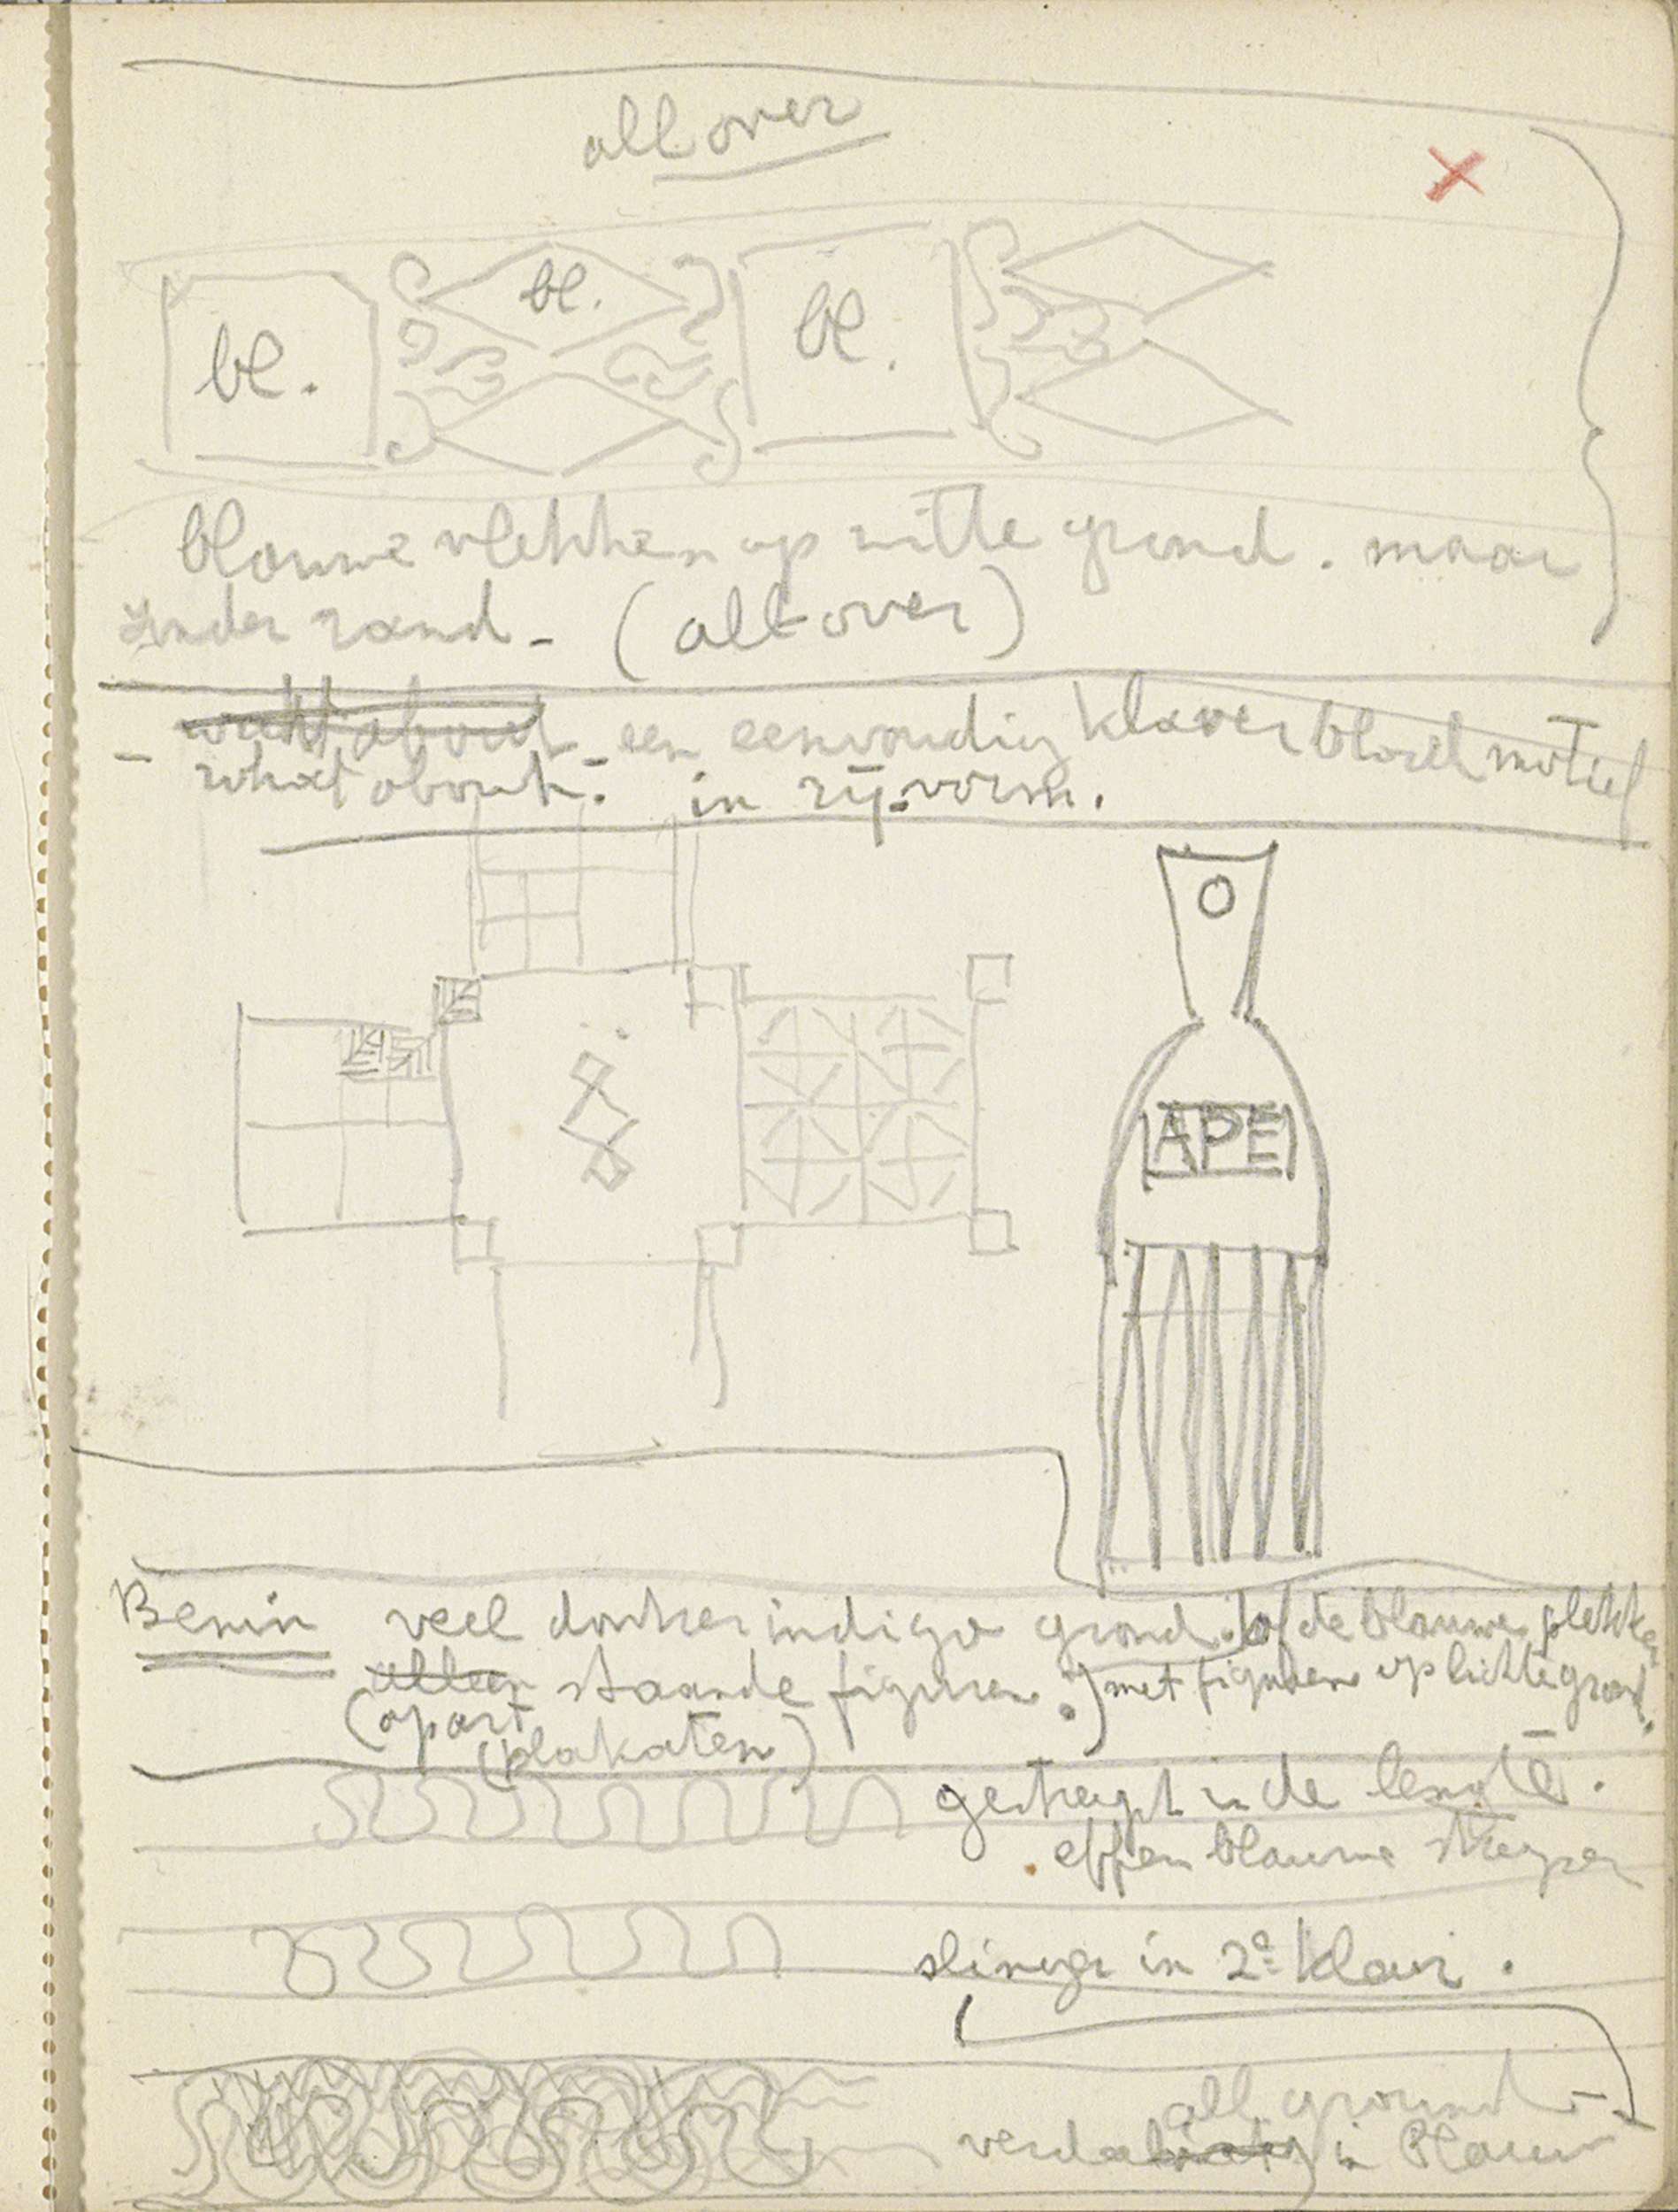 all over
bl.
bl.
bl.
blauwe vlekken op witte grond. maar
zonder rand - (all-over)
- what about een eenvoudig klaverblad motief
what about: in rij-vorm.
O
APE
Benin veel donker indigo grond. of de blauwe plekken
alleen staande figuren.) met figuren op lichte grond.
(apart
(plakaten)
gestreept in de lengte.
effen blauwe strepen
slinger in 2e kleur.
all ground -
in blauw